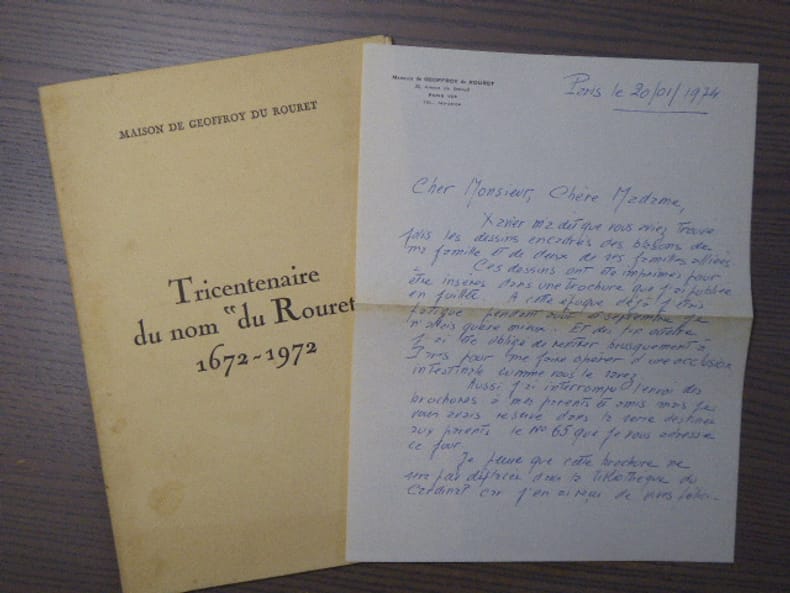 MAISON DE GEOFFROY DU ROURET
Tricentenaire
du nom "du Rouret"
1672-1972
GEOFFROY du ROURET
PARIS
Paris le 20/01/1974
Cher Monsieur, Chère Madame,
Xavier m'a dit que vous aviez trouvé
jolis les dessins encadrés des blasons de
ma famille et de deux de ses familles alliées.
Ces dessins ont été imprimés pour
être insérés dans une brochure que j'ai publiée
en juillet. A cette époque déjà j'étais
fatigué pendant août et septembre je
n'allais guère mieux. Et dès fin octobre
j'ai été obligé de rentrer brusquement à
Paris pour me faire opérer d'une occlusion
intestinale comme vous le savez.
Aussi j'ai interrompu l'envoi des
brochures à mes parents et amis mais je
vous avais réservé dans la série destinée
aux parents le No 65 que je vous adresse
ce jour.
Je pense que cette brochure ne
sera pas déplacée dans la bibliothèque du
Cardinat car j'en ai reçu de vives